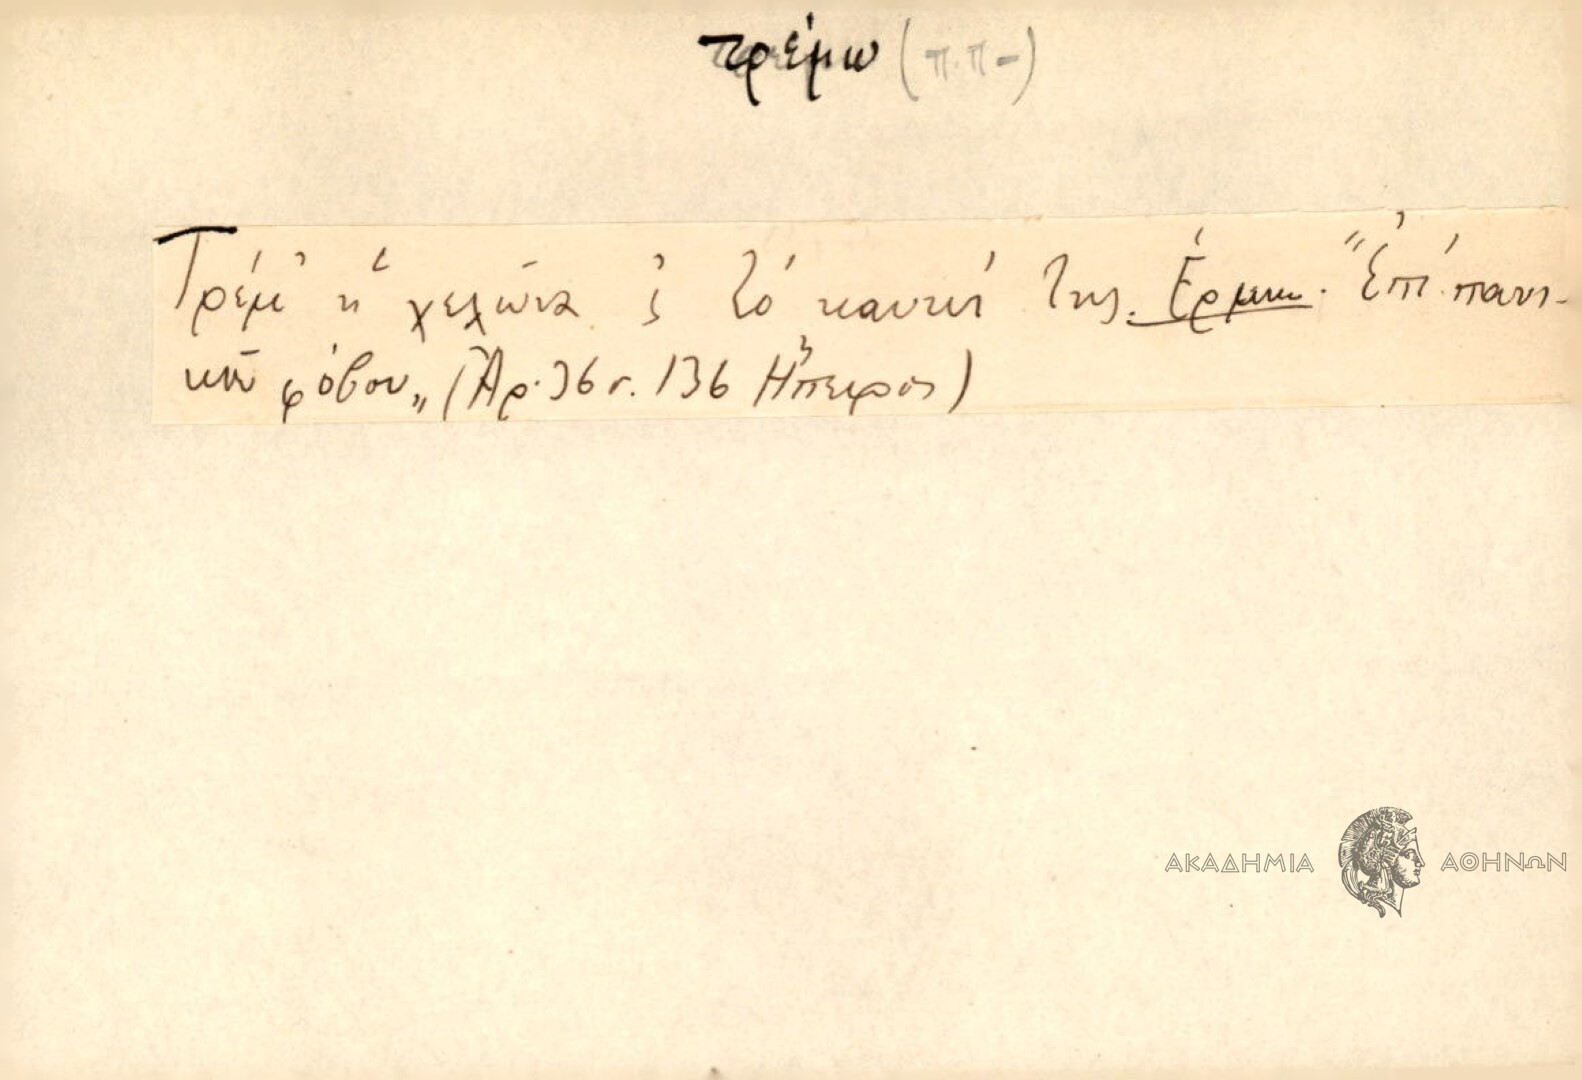 τρέμω (π.π-)
Τρέμ' ἡ χελῶνα ς τὸ καυκί της. Ἑρμην. "Ἐπί πανι-
κοῦ φόβου„ (Ἀρ. 36 σ. 136 Ἤπειρος)
ΑΚΑΔΗΜΙΑ ΑΘΗΝΩΝ